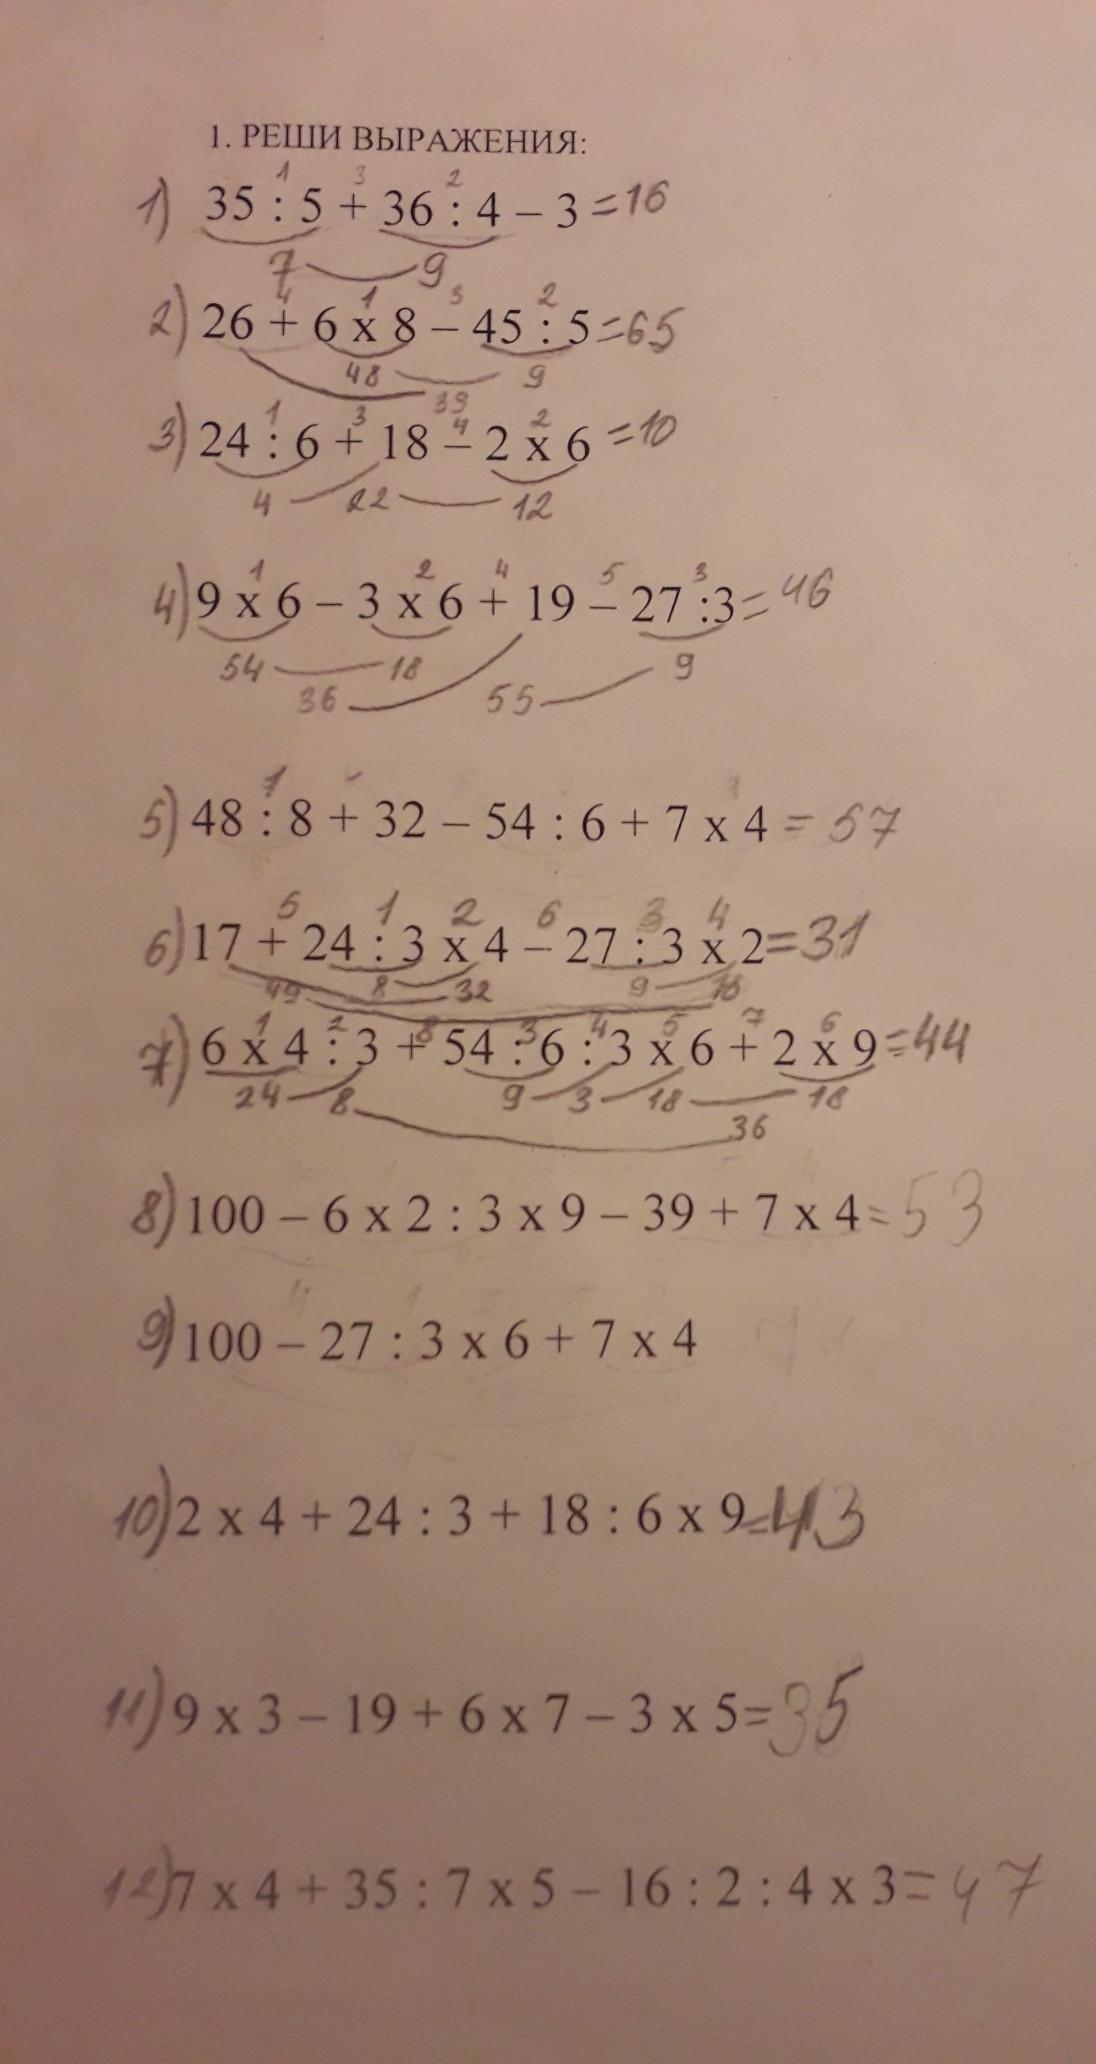 1. РЕШИ ВЫРАЖЕНИЯ:
1 3 2
1) 35 : 5 + 36 : 4 – 3 = 16
7 9
4 1 3 2
2) 26 + 6 x 8 – 45 : 5 = 65
48 9
39
1 3 4 2
3) 24 : 6 + 18 – 2 x 6 = 10
4 22 12
1 2 4 5 3
4) 9 x 6 – 3 x 6 + 19 – 27 :3 = 46
54 18 9
36 55
1
5) 48 : 8 + 32 – 54 : 6 + 7 x 4 = 57
5 1 2 6 3 4
6) 17 + 24 : 3 x 4 – 27 : 3 x 2 = 31
49 8 32 9 18
1 2 8 3 4 5 7 6
7) 6 x 4 : 3 + 54 : 6 : 3 x 6 + 2 x 9 = 44
24 8 9 3 18 18
36
8) 100 – 6 x 2 : 3 x 9 – 39 + 7 x 4 = 53
9) 100 – 27 : 3 x 6 + 7 x 4
10) 2 x 4 + 24 : 3 + 18 : 6 x 9 = 43
11) 9 x 3 – 19 + 6 x 7 – 3 x 5 = 35
12) 7 x 4 + 35 : 7 x 5 – 16 : 2 : 4 x 3 = 47